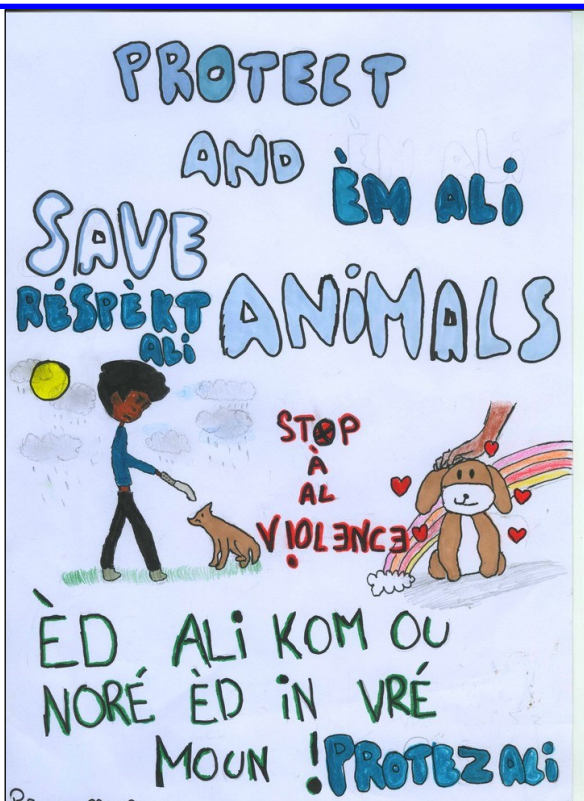 PROTECT
AND
ÈM ALi
SAVE
RÉSPÈKT
ALi
ANiMALS
STOP
À
AL
V!OLENCE
ÈD ALi KOM OU
NORÉ ÈD iN VRÉ
MOUN !
PROTEZ ALi